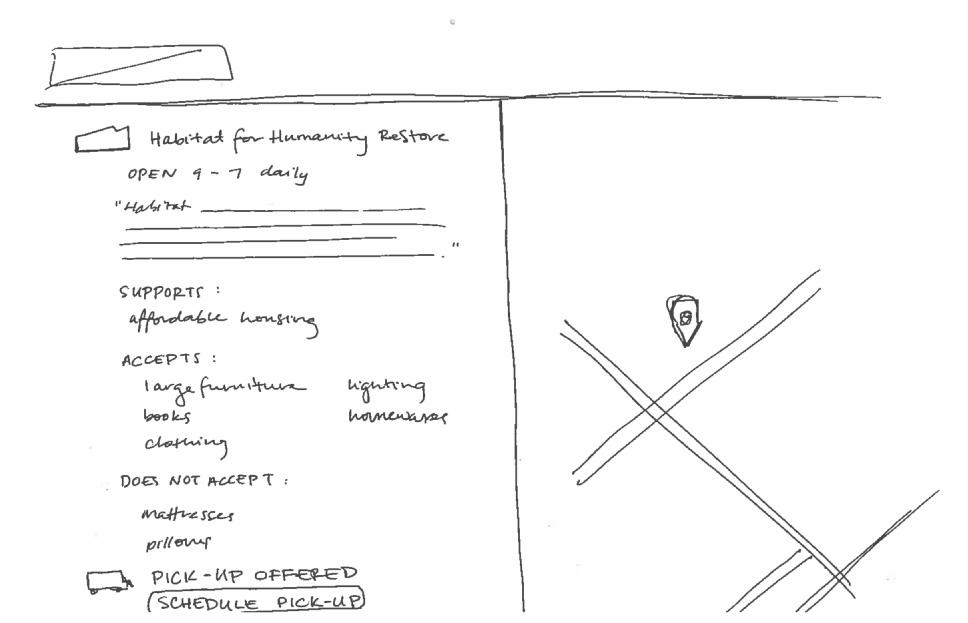 Habitat for Humanity ReStore
OPEN 9-7 daily
"Habitat
."
SUPPORTS :
affordable housing
ACCEPTS :
large furniture lighting
books homewares
clothing
DOES NOT ACCEPT :
mattresses
pillows
PICK-UP OFFERED
SCHEDULE PICK-UP